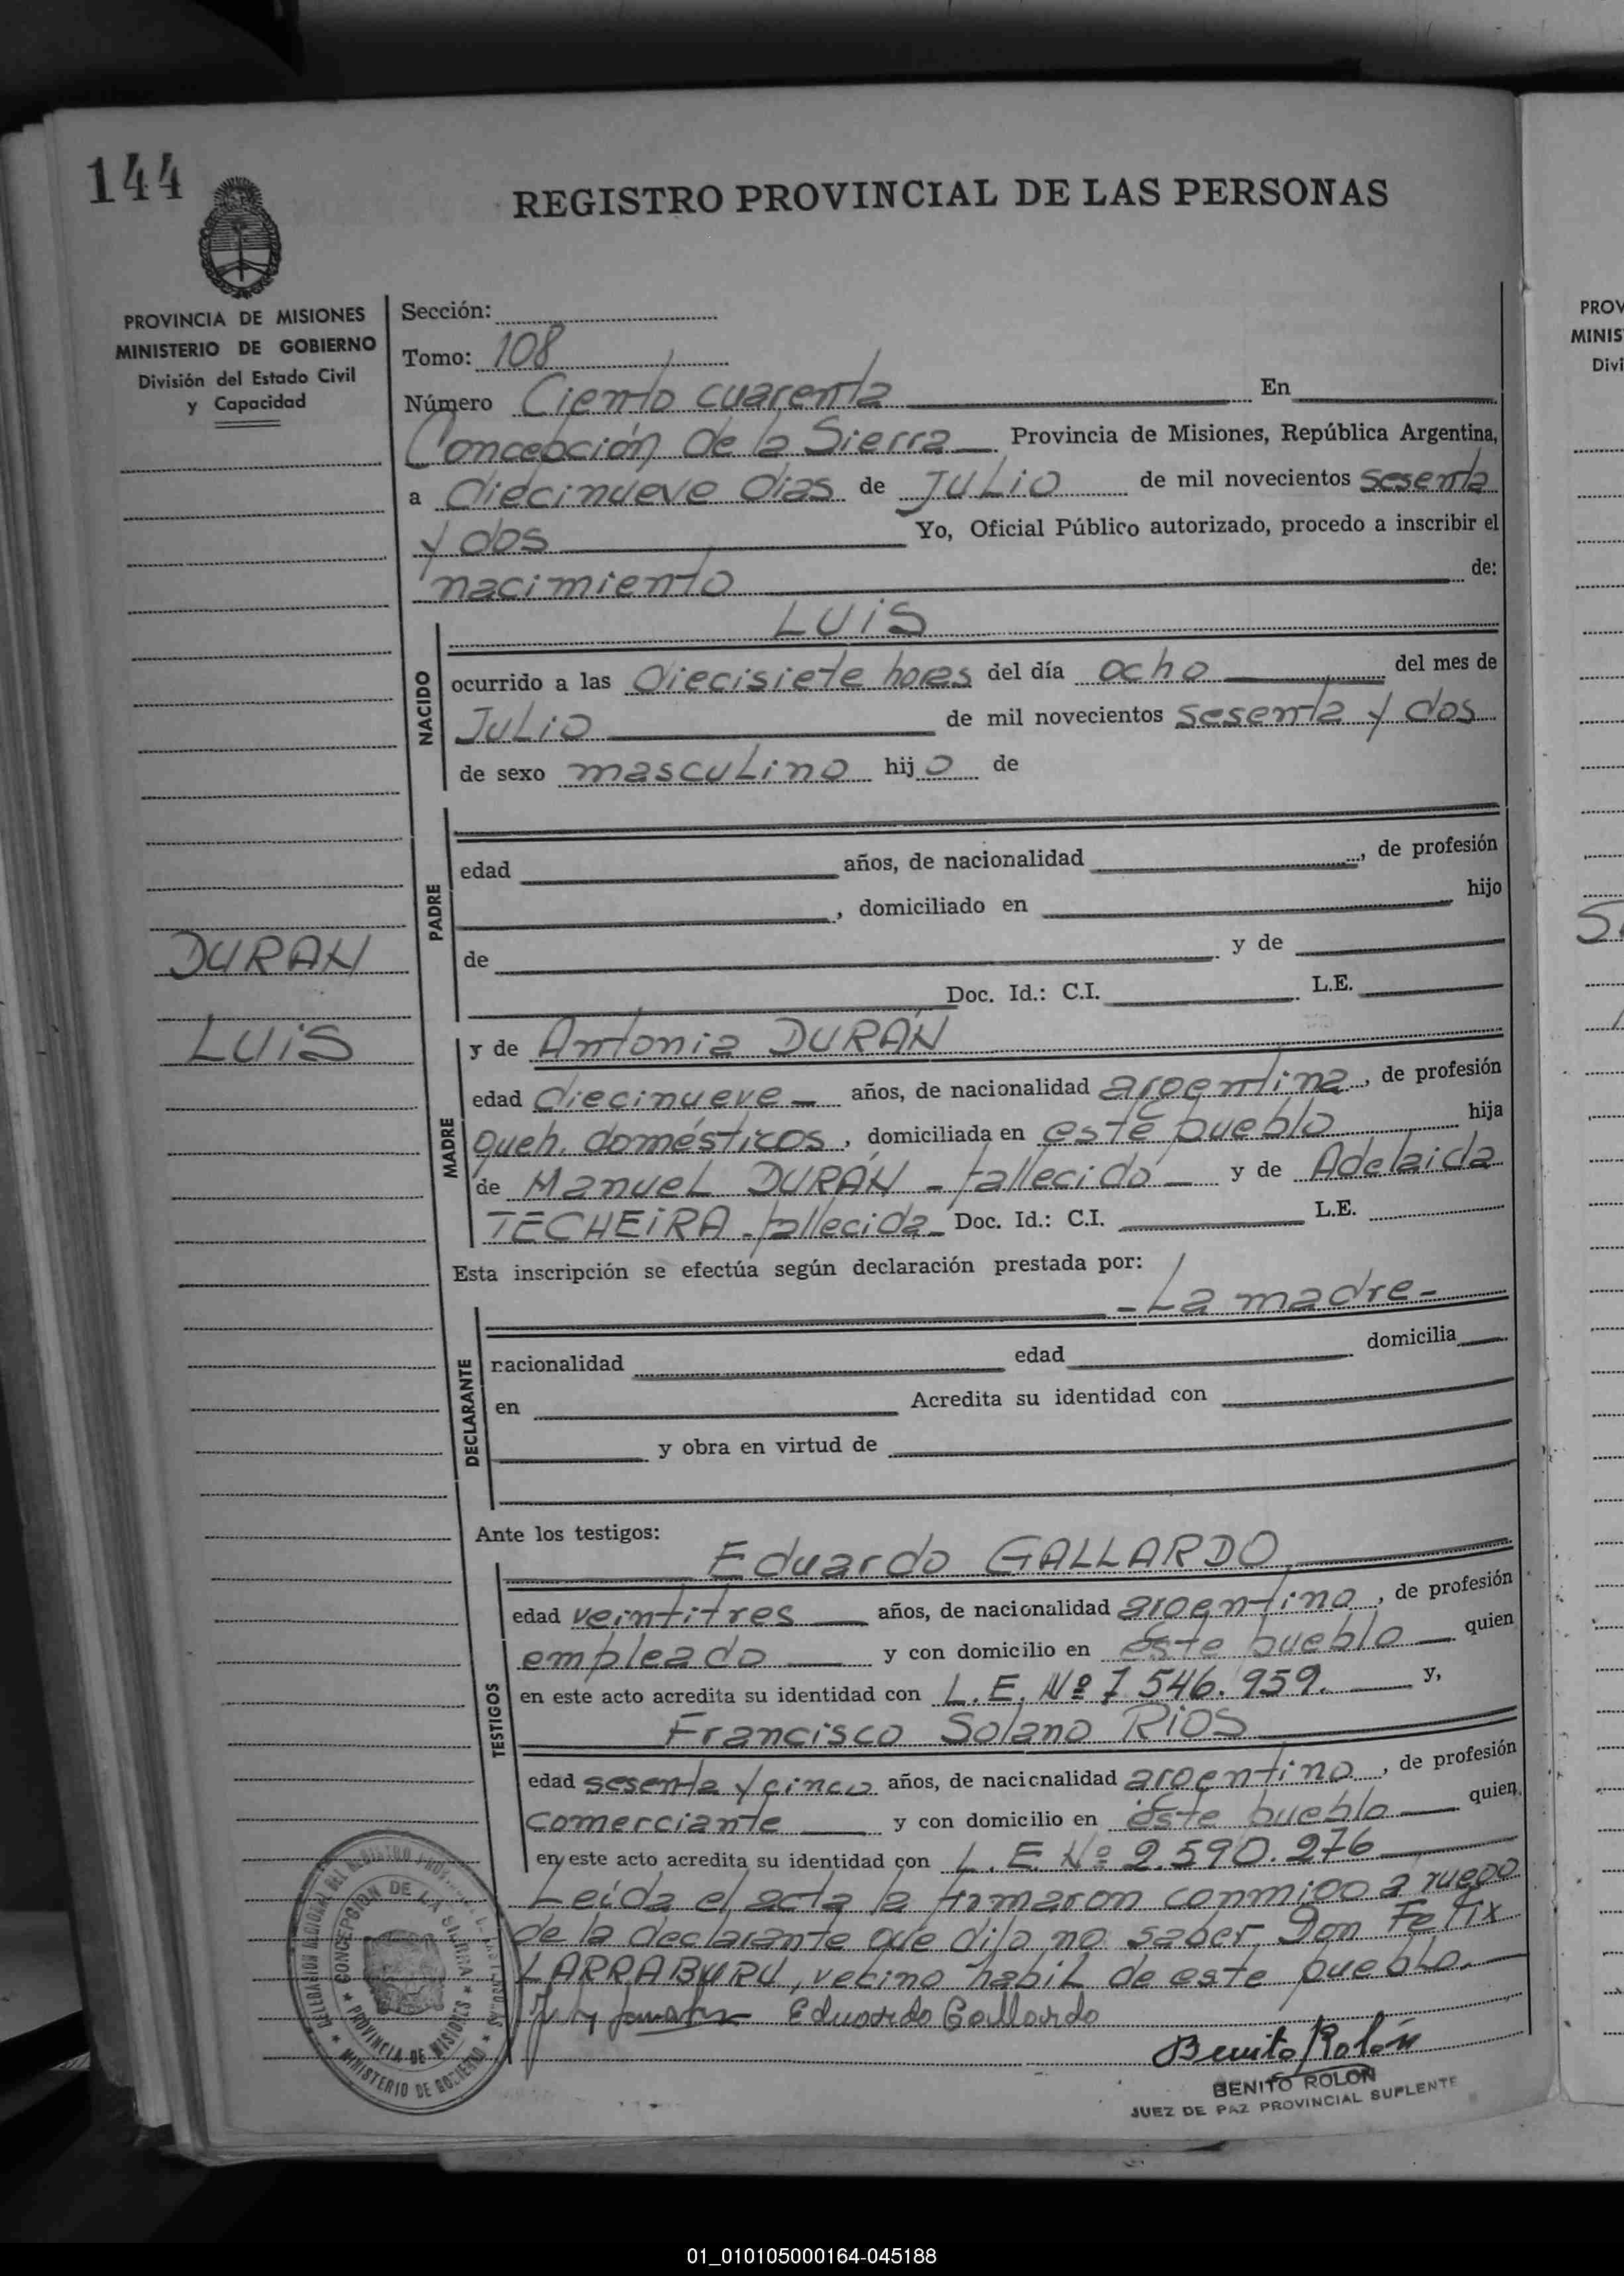 144
REGISTRO PROVINCIAL DE LAS PERSONAS
PROVINCIA DE MISIONES
MINISTERIO DE GOBIERNO
División del Estado Civil
y Capacidad
Sección:
Tomo: 108
Número Ciento cuarenta En
Concepción de la Sierra Provincia de Misiones, República Argentina,
a diecinueve dias de JULIO de mil novecientos sesenta
y dos Yo, Oficial Público autorizado, procedo a inscribir el
nacimiento de:
NACIDO
LUIS
ocurrido a las diecisiete horas del día ocho del mes de
JULIO de mil novecientos sesenta y dos
de sexo masculino hijo de
PADRE
edad años, de nacionalidad , de profesión
, domiciliado en hijo
de y de
Doc. Id.: C.I. L.E.
DURAN
LUIS
MADRE
y de Antonia DURÁN
edad diecinueve años, de nacionalidad argentina, de profesión
queh. domésticos, domiciliada en este pueblo hija
de Manuel DURÁN - fallecido - y de Adelaida
TECHEIRA - fallecida - Doc. Id.: C.I. L.E.
Esta inscripción se efectúa según declaración prestada por:
- La madre -
DECLARANTE
nacionalidad edad domicilia
en Acredita su identidad con
y obra en virtud de
Ante los testigos:
TESTIGOS
Eduardo GALLARDO
edad veintitres años, de nacionalidad argentino, de profesión
empleado y con domicilio en este pueblo quien
en este acto acredita su identidad con L.E. Nº 7.546.959. y,
Francisco Solano RIOS
edad sesenta y cinco años, de nacionalidad argentino, de profesión
comerciante y con domicilio en este pueblo quien
en este acto acredita su identidad con L.E. Nº 2.590.276
Leída el acta la firmaron conmigo a ruego
de la declarante que dijo no saber Don Felix
LARRABURU, vecino habil de este pueblo.
Eduardo Gallardo
Benito Rolón
BENITO ROLON
JUEZ DE PAZ PROVINCIAL SUPLENTE
DELEGACION REGIONAL DEL REGISTRO
CONCEPCION DE LA SIERRA
PROVINCIA DE MISIONES
MINISTERIO DE GOBIERNO
PROV
MINIS
Divi
01_010105000164-045188